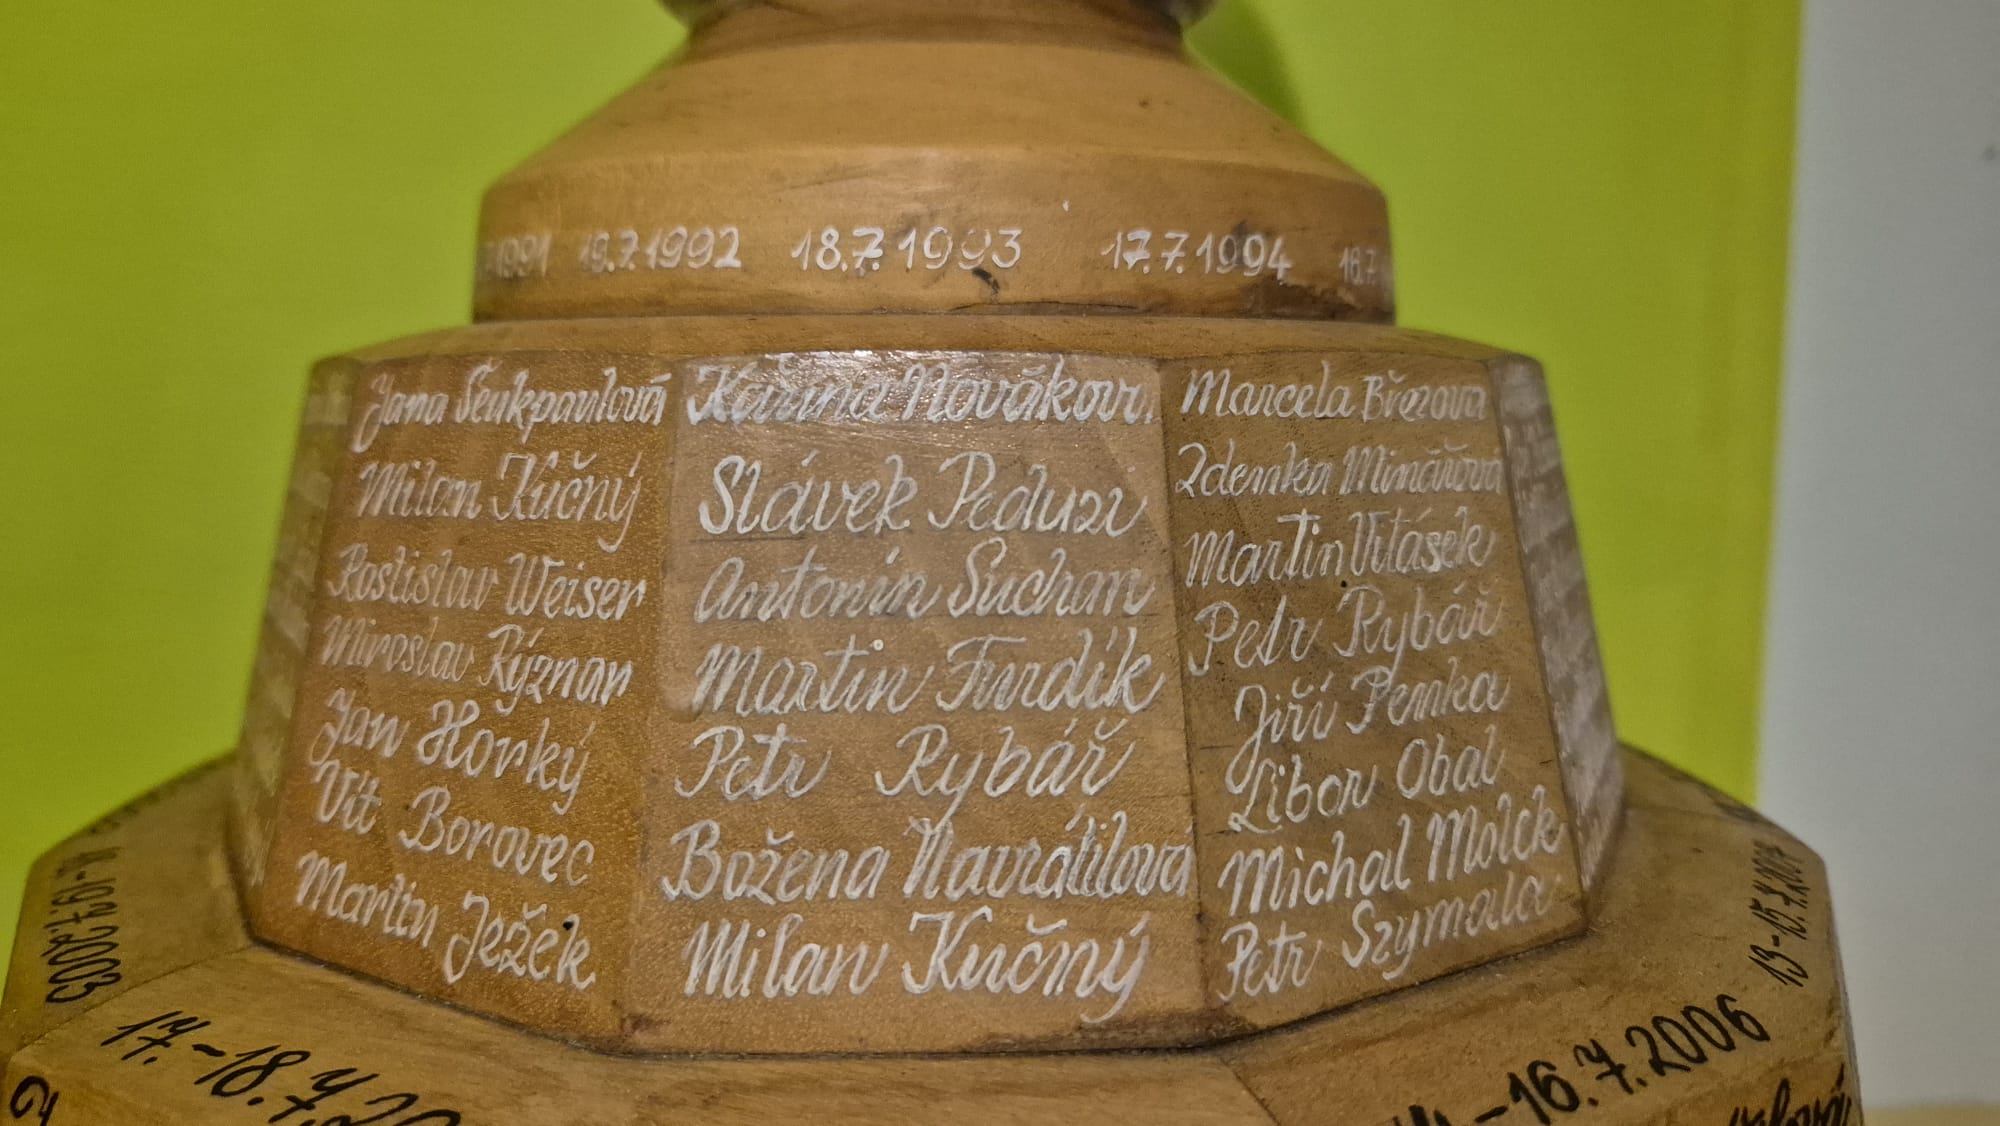 1991 19.7.1992 18.7.1993 17.7.1994 16.7.
Jana Šenkpaulová
Milan Kučný
Rostislav Weiser
Miroslav Rýznar
Jan Horký
Vít Borovec
Martin Ježek
Kateřina Nováková
Slávek Peduzzi
Antonín Suchan
Martin Furdík
Petr Rybář
Božena Navrátilová
Milan Kučný
Marcela Březova
Zdenka Minářová
Martin Vitásek
Petr Rybář
Jiří Pemka
Libor Obal
Michal Molck
Petr Szymala
19.7.2003
17.-18.7.20
-16.7.2006
13-15.7.2007